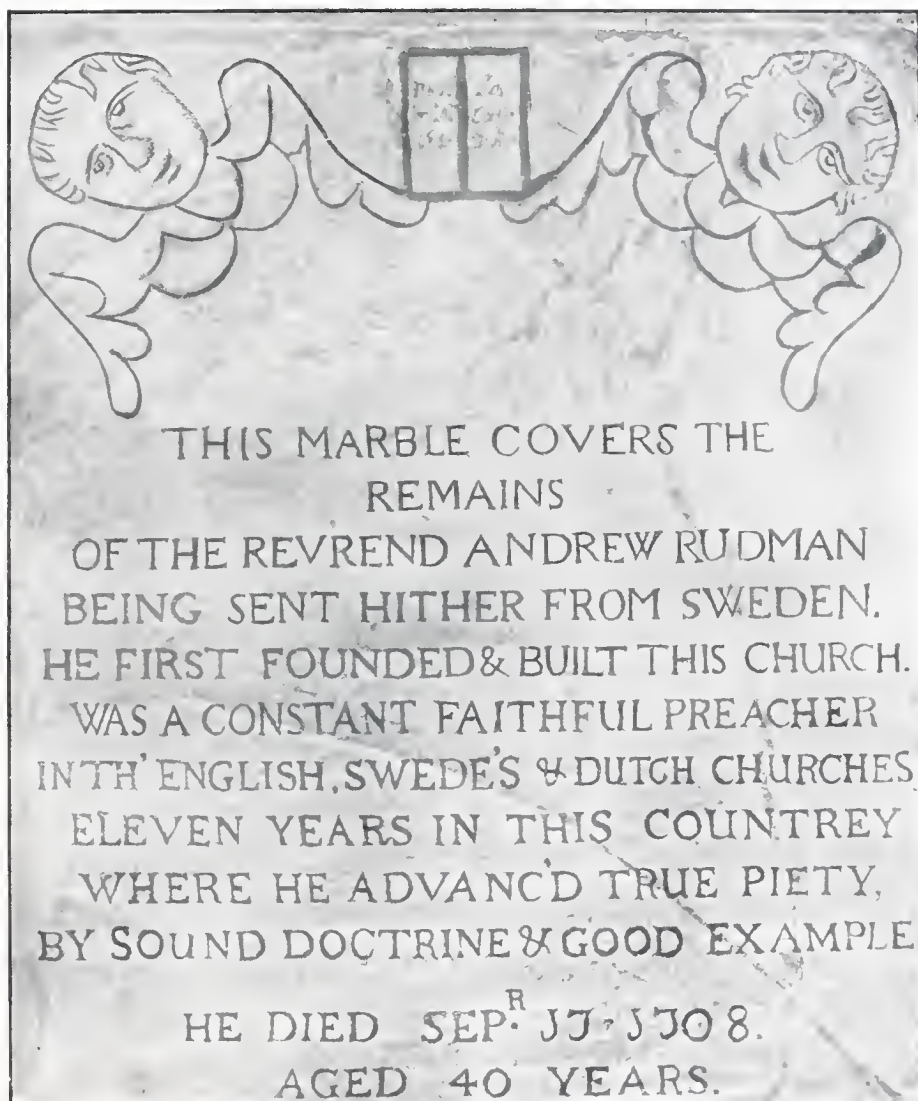 THIS MARBLE COVERS THE
REMAINS
OF THE REVREND ANDREW RUDMAN
BEING SENT HITHER FROM SWEDEN.
HE FIRST FOUNDED & BUILT THIS CHURCH.
WAS A CONSTANT FAITHFUL PREACHER
IN TH' ENGLISH, SWEDE'S & DUTCH CHURCHES
ELEVEN YEARS IN THIS COUNTREY
WHERE HE ADVANC'D TRUE PIETY,
BY SOUND DOCTRINE & GOOD EXAMPLE
HE DIED SEP.R JJ. J7O8.
AGED 40 YEARS.